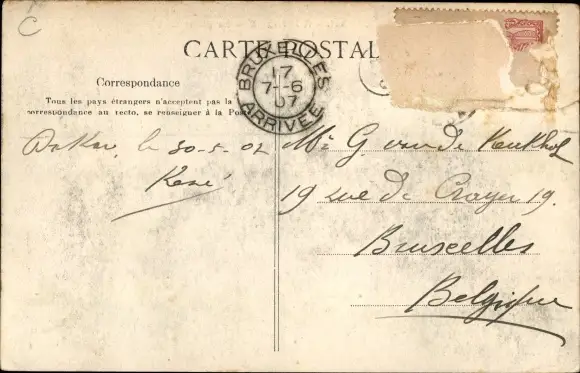 C
CARTE POSTAL
BRUXELLES
17
7-6
07
ARRIVÉE
Correspondance
Tous les pays étrangers n'acceptent pas la
correspondance au recto, se renseigner à la Pos
Dakar, le 30-5-07
René
Mr G. van de Kerkhof
19 rue de Crayer 19.
Bruxelles
Belgique